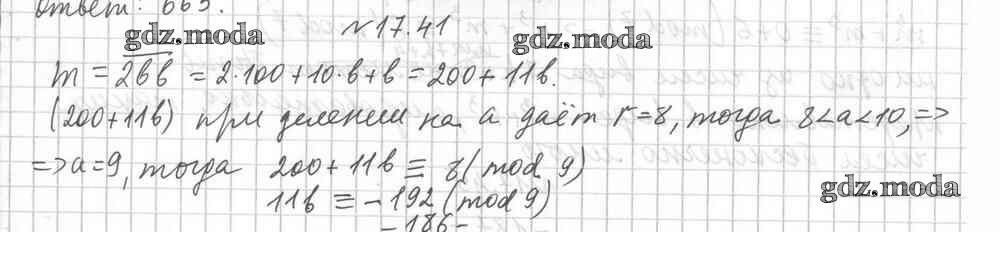 Ответ: 665.
№17.41
gdz.moda
gdz.moda
m = 2вв = 2·100+10·в+в = 200+11в.
(200+11в) при делении на a даёт r=8, тогда 8<a<10, =>
=> a=9, тогда 200+11в ≡ 8(mod 9)
gdz.moda
11в ≡ -192 (mod 9)
-186-